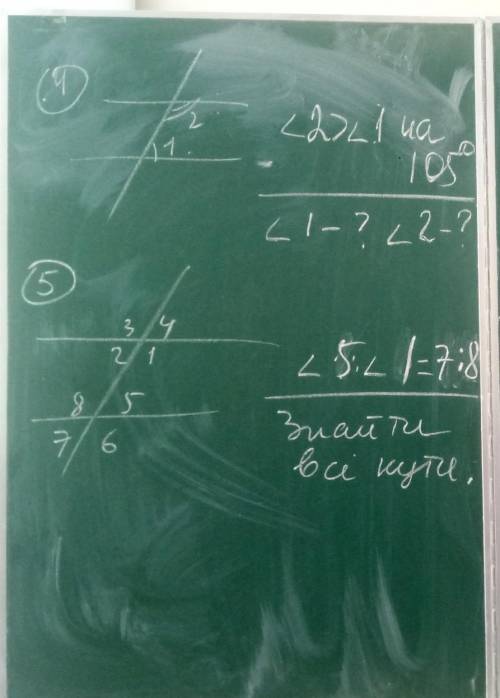 4
2
1
∠2>∠1 на
105°
∠1-? ∠2-?
5
3 4
2 1
8 5
7 6
∠5:∠1=7:8
Знайти
всі кути.